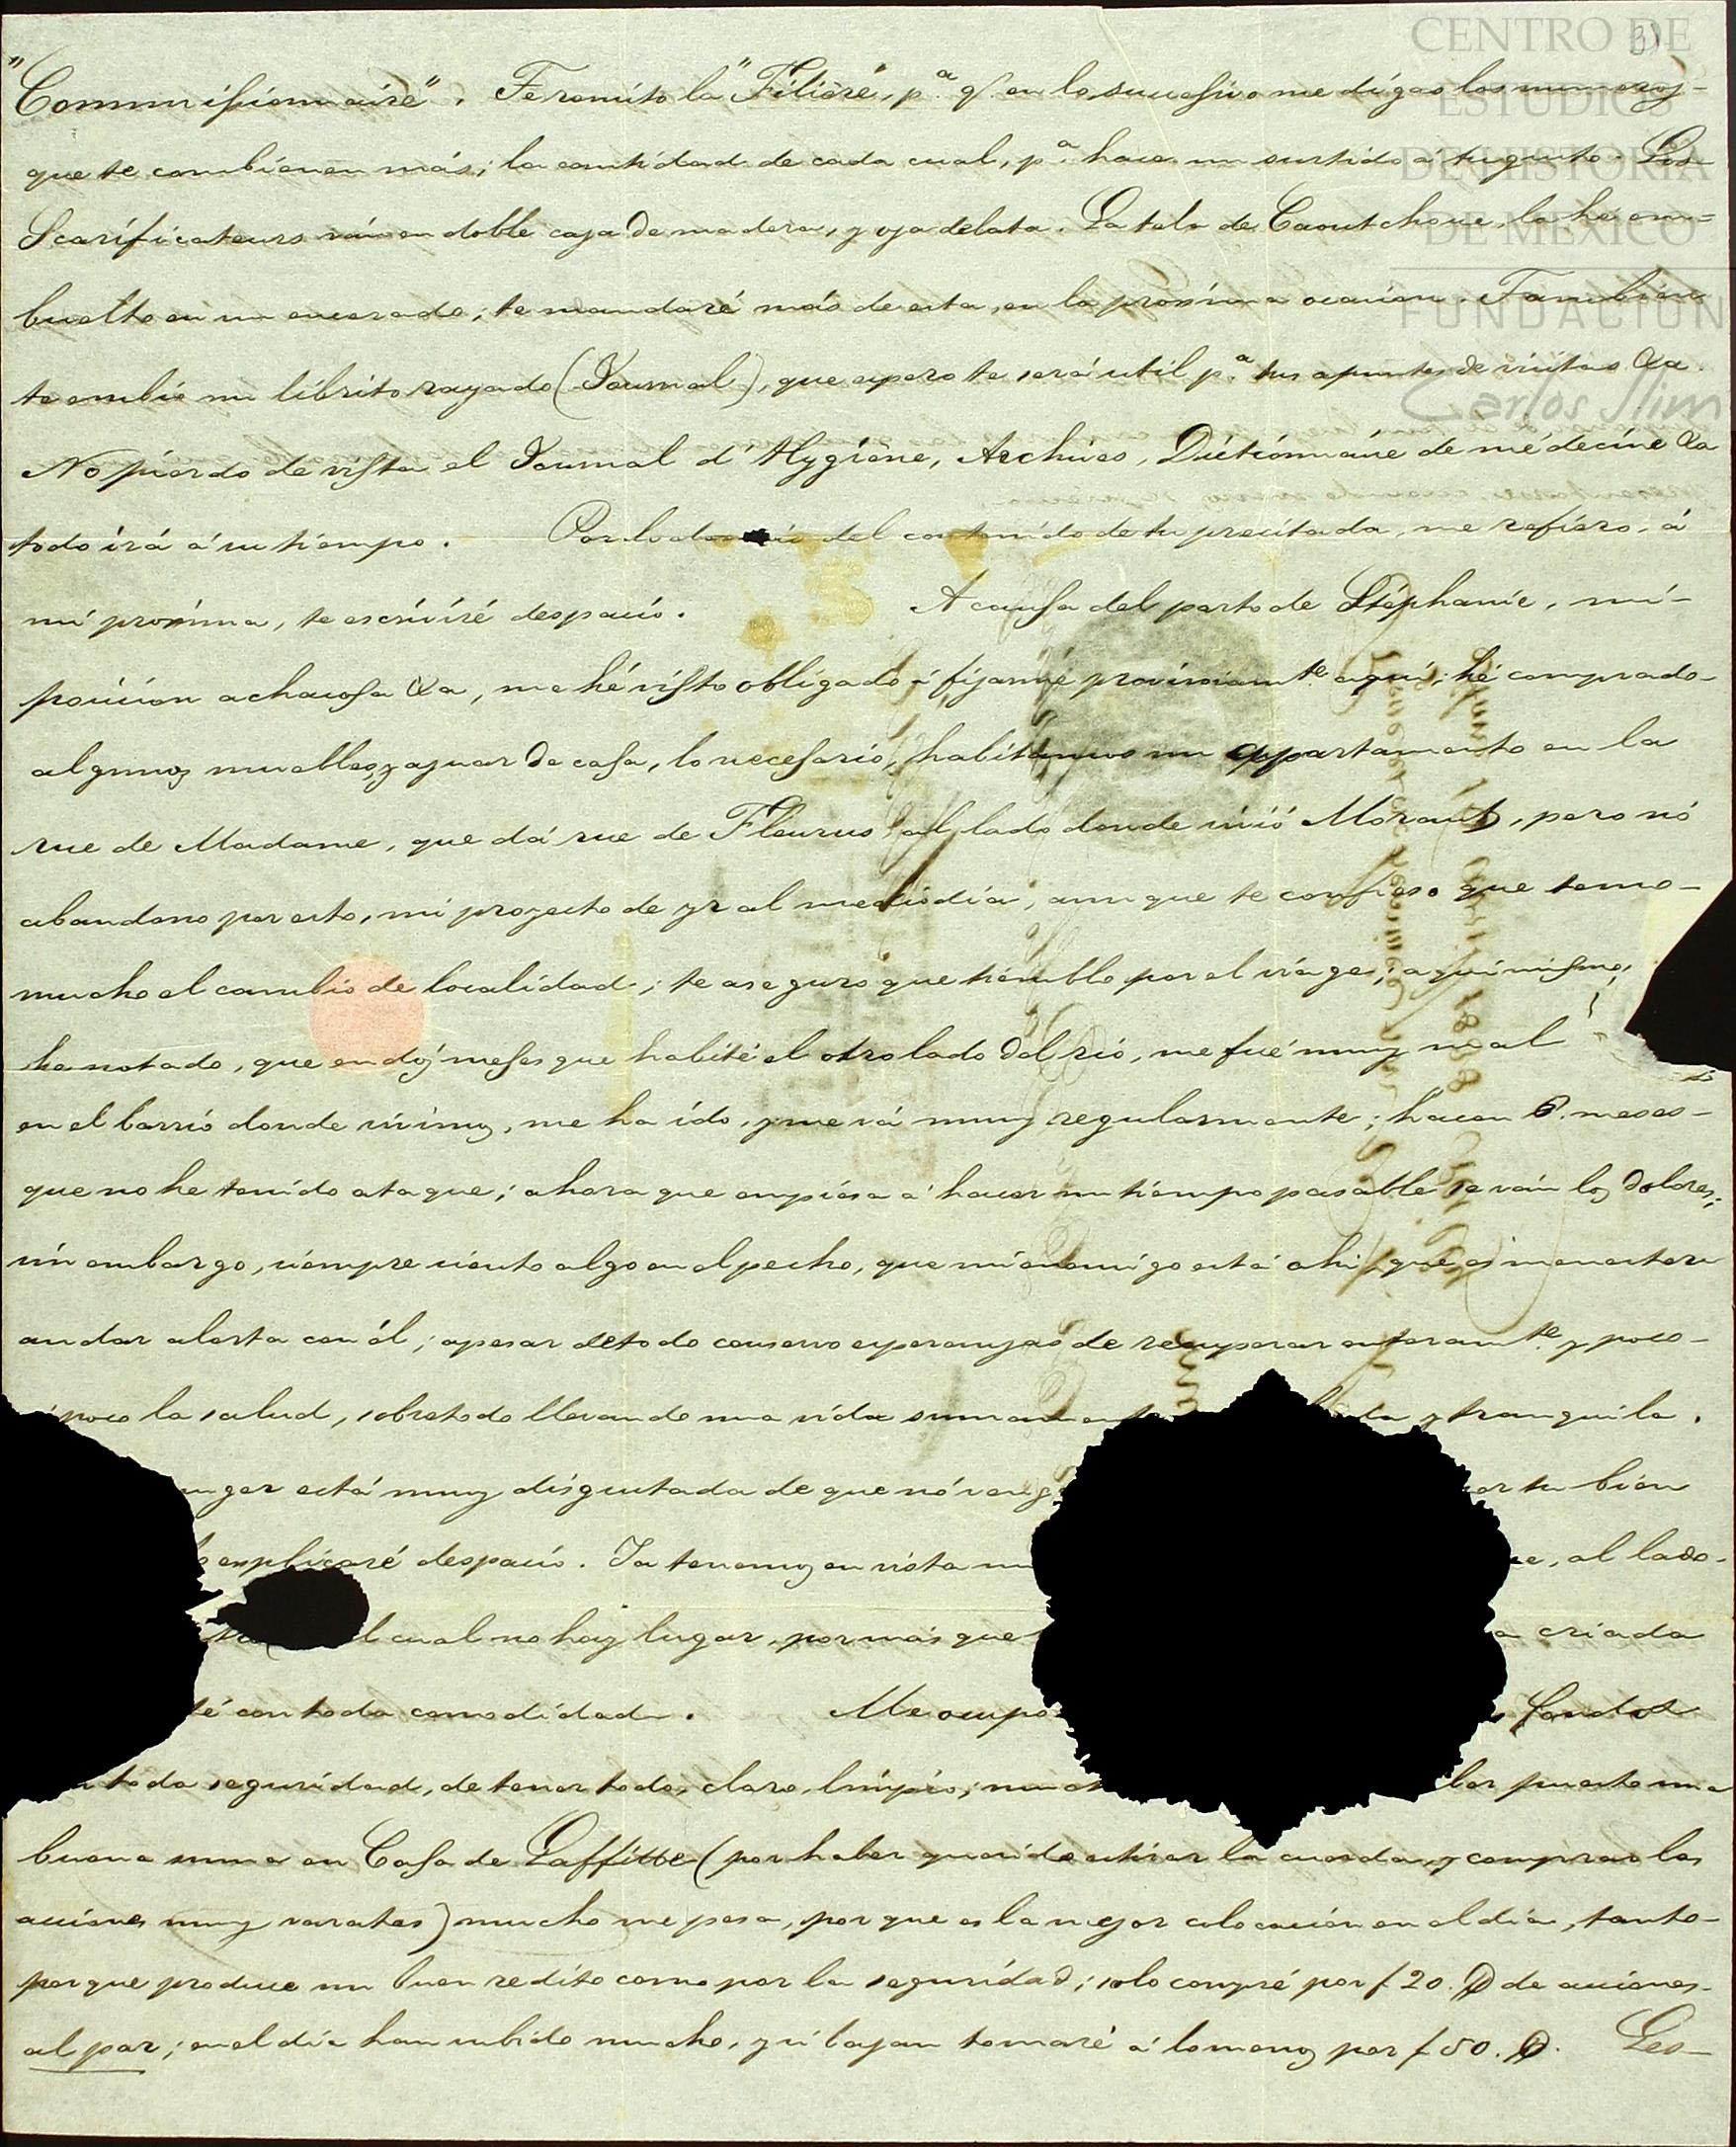 CENTRO DE
ESTUDIOS
DE HISTORIA
DE MÉXICO
FUNDACIÓN
Carlos Slim
31
"Commissionnaire". Te remito la "Filière", p.ª q.e en lo sucesivo me digas los numeros-
que te combienen más; la cantidad de cada cual, p.ª hacer un surtido á tu gusto. Los
Scarificateurs ván en doble caja de madera, y oja de lata. La tela de Caoutchouc, la hé em=
buelto en un encerado; te mandaré más de esta, en la proxíma ocasion. Tambien
te embio un librito rayado (Journal), que espero te será util p.ª tus apuntes de visitas &a.
No pierdo de vista el Journal d'Hygiène, Archives, Dictionnaire de médecine &a
todo irá á su tiempo. Por lo demás del contenido de tu precitada, me refiero, á
mi proxíma, te escriviré despacio. A causa del parto de Stéphanie, mi-
posicion achacosa &a, me hé visto obligado á fijarme provisionam.te aquí; hé comprado-
algunos muebles, y ajuar de casa, lo necesario, habitamos un appartamento en la
rue de Madame, que dá rue de Fleurus al lado donde vivió Morant, pero nó
abandono por esto, mi proyecto de yr al mediodia, aunque te confieso que temo-
mucho el cambio de localidad; te aseguro que tiemblo por el viage; aqui mismo,
he notado, que en dos meses que habité el otro lado del rio, me fué muy mal
en el barrio donde vivimos, me ha ido, y me vá muy regularmente; hacen 6. meses-
que no he tenido ataque; ahora que empiesa á hacer un tiempo pasable se ván los dolores;
sin embargo, siempre siento algo en el pecho, que mi enemigo está ahi, que es menester
andar alerta con él; apesar de todo conservo esperanzas de recuperar enteram.te y poco-
á poco la salud, sobre todo llevando una vida y tranquila.
muger está muy disgustada de que nó por tu bien
explicaré despacio. Ya tenemos en vista un al lado-
el cual no hay lugar, por más que criada
té con toda comodidad. Me ocupo fondos
toda seguridad, de tener todo, claro, limpio; puesto una
buena suma en Casa de Laffitte (por haber querido estirar la cuerda, y comprar las
acciones muy varatas) mucho me pesa, por que es la mejor colocacion en el dia, tanto-
por que produce un buen redito como por la seguridad; solo compré por f 20. D de acciones-
al par; en el dia han subido mucho, y si bajan tomaré á lo menos por f 50. D. Les-